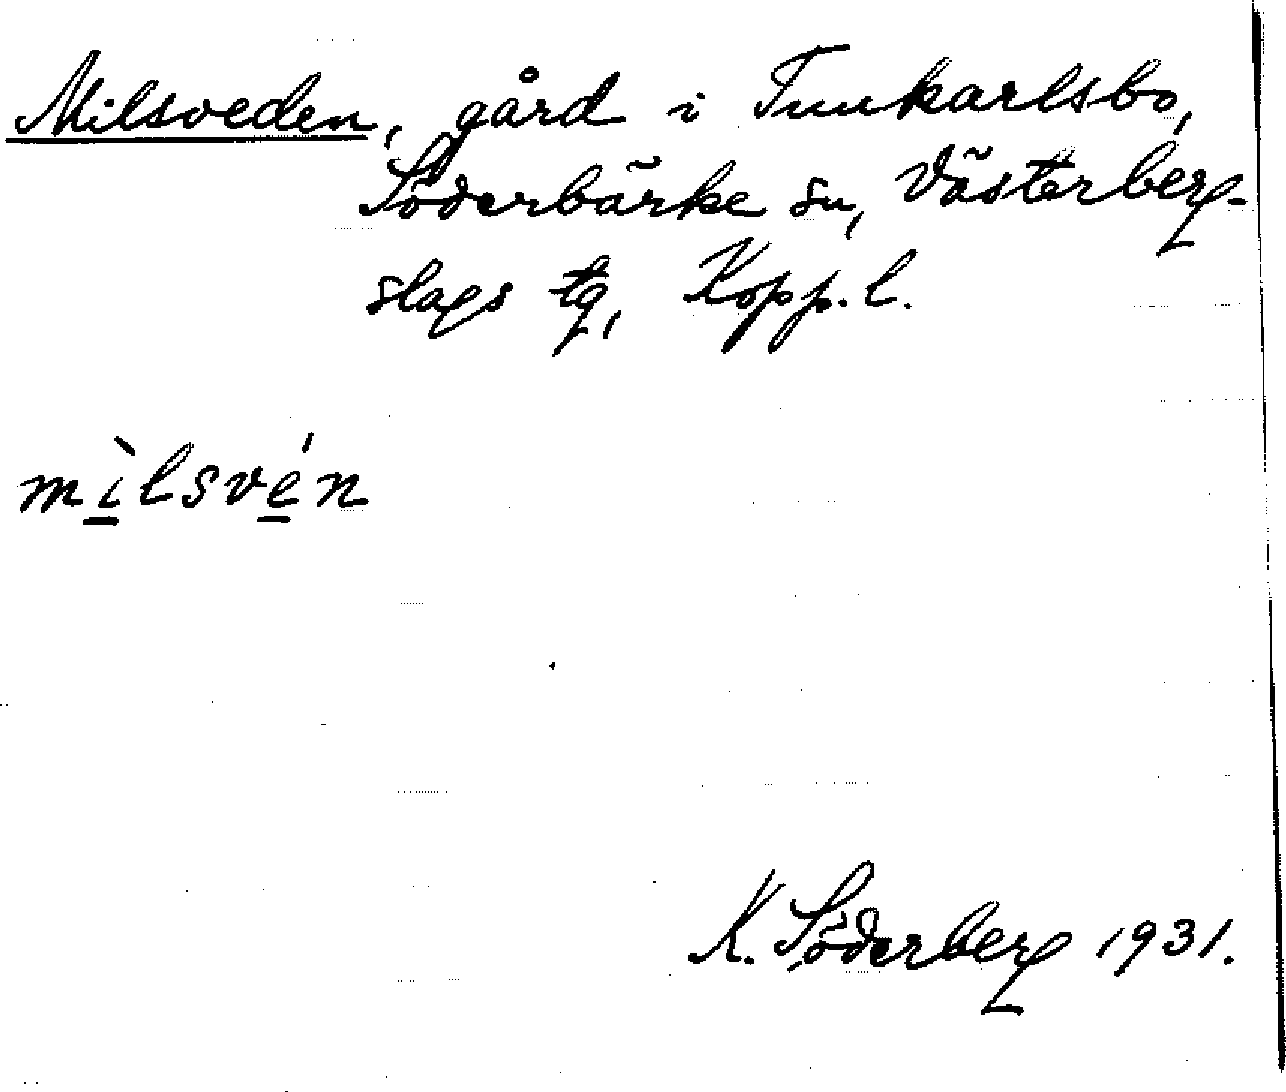 Milsveden, gård i Tunkarlsbo,
Söderbärke sn, Västerberg-
slags tg, Kopp. l.
mìlsvén
K. Söderberg 1931.